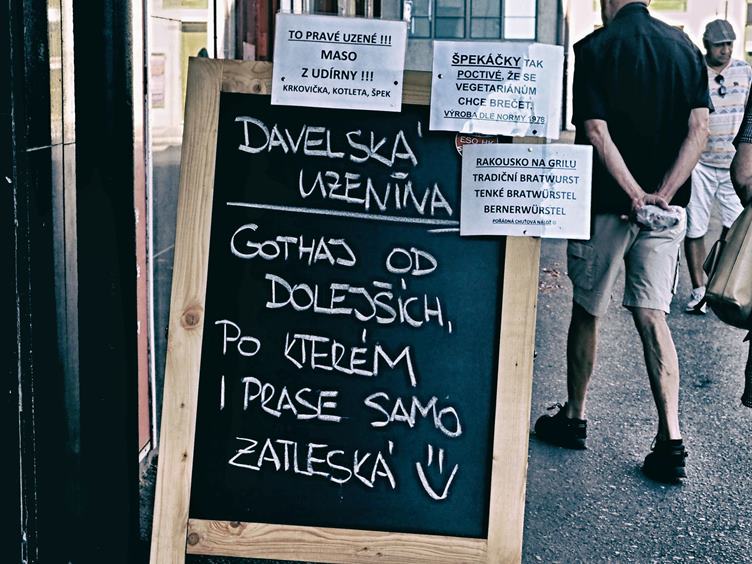 TO PRAVÉ UZENÉ !!!
MASO
Z UDÍRNY !!!
KRKOVIČKA, KOTLETA, ŠPEK
ŠPEKÁČKY TAK
POCTIVÉ, ŽE SE
VEGETARIÁNŮM
CHCE BREČET,
VÝROBA DLE NORMY 1978
RAKOUSKO NA GRILU
TRADIČNÍ BRATWURST
TENKÉ BRATWÜRSTEL
BERNERWÜRSTEL
POŘÁDNÁ CHUŤOVÁ NÁLOŽ
DAVELSKÁ
UZENINA
GOTHAJ OD
DOLEJŠÍCH,
PO KTERÉM
I PRASE SAMO
ZATLESKÁ